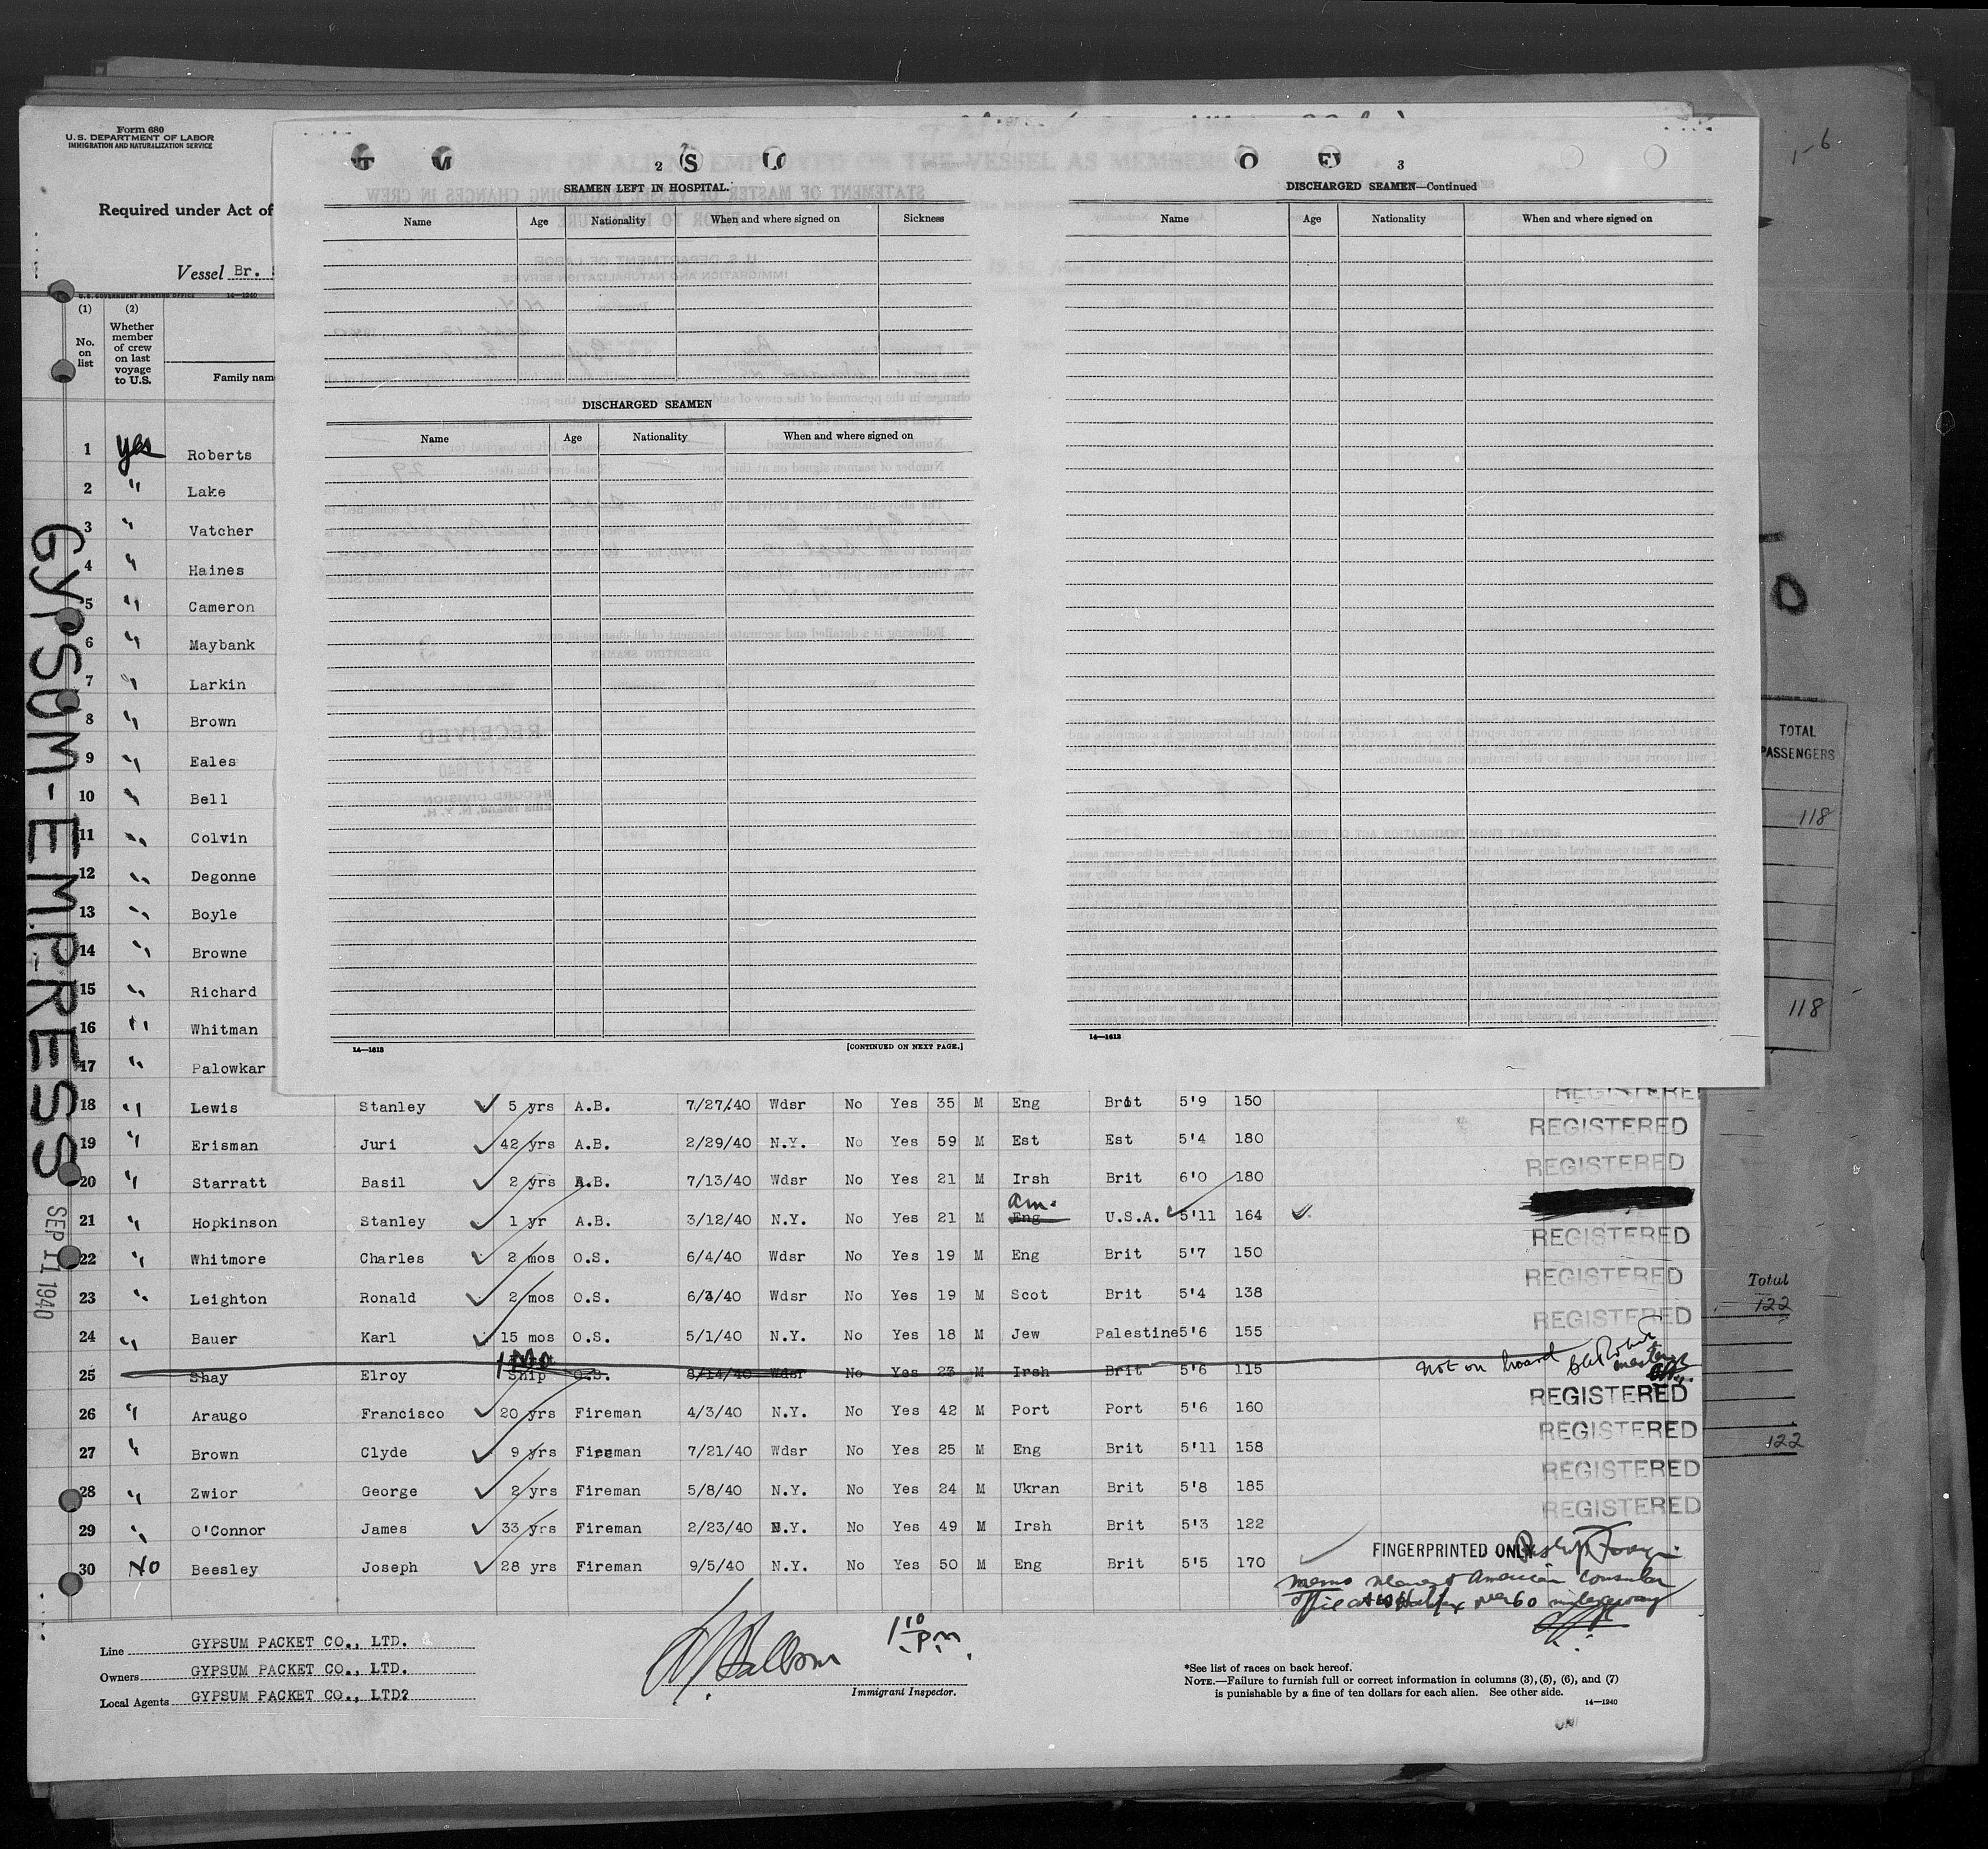 Form 680
U. S. DEPARTMENT OF LABOR
IMMIGRATION AND NATURALIZATION SERVICE
Required under Act of
Vessel Br.
U. S. GOVERNMENT PRINTING OFFICE 14—1240
(1) (2)
No. on list
Whether member of crew on last voyage to U.S.
Family nam
2
SEAMEN LEFT IN HOSPITAL.
Name Age Nationality When and where signed on Sickness
DISCHARGED SEAMEN
Name Age Nationality When and where signed on
14—1613 [CONTINUED ON NEXT PAGE.]
3
DISCHARGED SEAMEN—Continued
Name Age Nationality When and where signed on
14—1613
1-6
TOTAL PASSENGERS
118
118
Total
122
122
GYPSUM-EMPRESS
SEP 11 1940
1 yes Roberts
2 " Lake
3 " Vatcher
4 " Haines
5 " Cameron
6 " Maybank
7 " Larkin
8 " Brown
9 " Eales
10 " Bell
11 " Colvin
12 " Degonne
13 " Boyle
14 " Browne
15 " Richard
16 " Whitman
17 " Palowkar
REGISTERED
18 " Lewis Stanley 5 yrs A.B. 7/27/40 Wdsr No Yes 35 M Eng Brit 5'9 150 REGISTERED
19 " Erisman Juri 42 yrs A.B. 2/29/40 N.Y. No Yes 59 M Est Est 5'4 180 REGISTERED
20 " Starratt Basil 2 yrs A.B. 7/13/40 Wdsr No Yes 21 M Irsh Brit 6'0 180
am.
21 " Hopkinson Stanley 1 yr A.B. 3/12/40 N.Y. No Yes 21 M Eng U.S.A. 5'11 164
22 " Whitmore Charles 2 mos O.S. 6/4/40 Wdsr No Yes 19 M Eng Brit 5'7 150 REGISTERED
23 " Leighton Ronald 2 mos O.S. 6/3/40 Wdsr No Yes 19 M Scot Brit 5'4 138 REGISTERED
24 " Bauer Karl 15 mos O.S. 5/1/40 N.Y. No Yes 18 M Jew Palestine 5'6 155 REGISTERED
25 Shay Elroy 1 mo ship O.S. 8/14/40 Wdsr No Yes 23 M Irsh Brit 5'6 115 not on board master
26 " Araugo Francisco 20 yrs Fireman 4/3/40 N.Y. No Yes 42 M Port Port 5'6 160 REGISTERED
27 " Brown Clyde 9 yrs Fireman 7/21/40 Wdsr No Yes 25 M Eng Brit 5'11 158 REGISTERED
28 " Zwior George 2 yrs Fireman 5/8/40 N.Y. No Yes 24 M Ukran Brit 5'8 185 REGISTERED
29 " O'Connor James 33 yrs Fireman 2/23/40 N.Y. No Yes 49 M Irsh Brit 5'3 122 REGISTERED
30 No Beesley Joseph 28 yrs Fireman 9/5/40 N.Y. No Yes 50 M Eng Brit 5'5 170 FINGERPRINTED ONLY
memo nearest American Consular
office at Halifax over 60 miles away
Line GYPSUM PACKET CO., LTD.
Owners GYPSUM PACKET CO., LTD.
Local Agents GYPSUM PACKET CO., LTD?
1 10 pm
Immigrant Inspector.
*See list of races on back hereof.
NOTE.—Failure to furnish full or correct information in columns (3), (5), (6), and (7)
is punishable by a fine of ten dollars for each alien. See other side.
14—1240